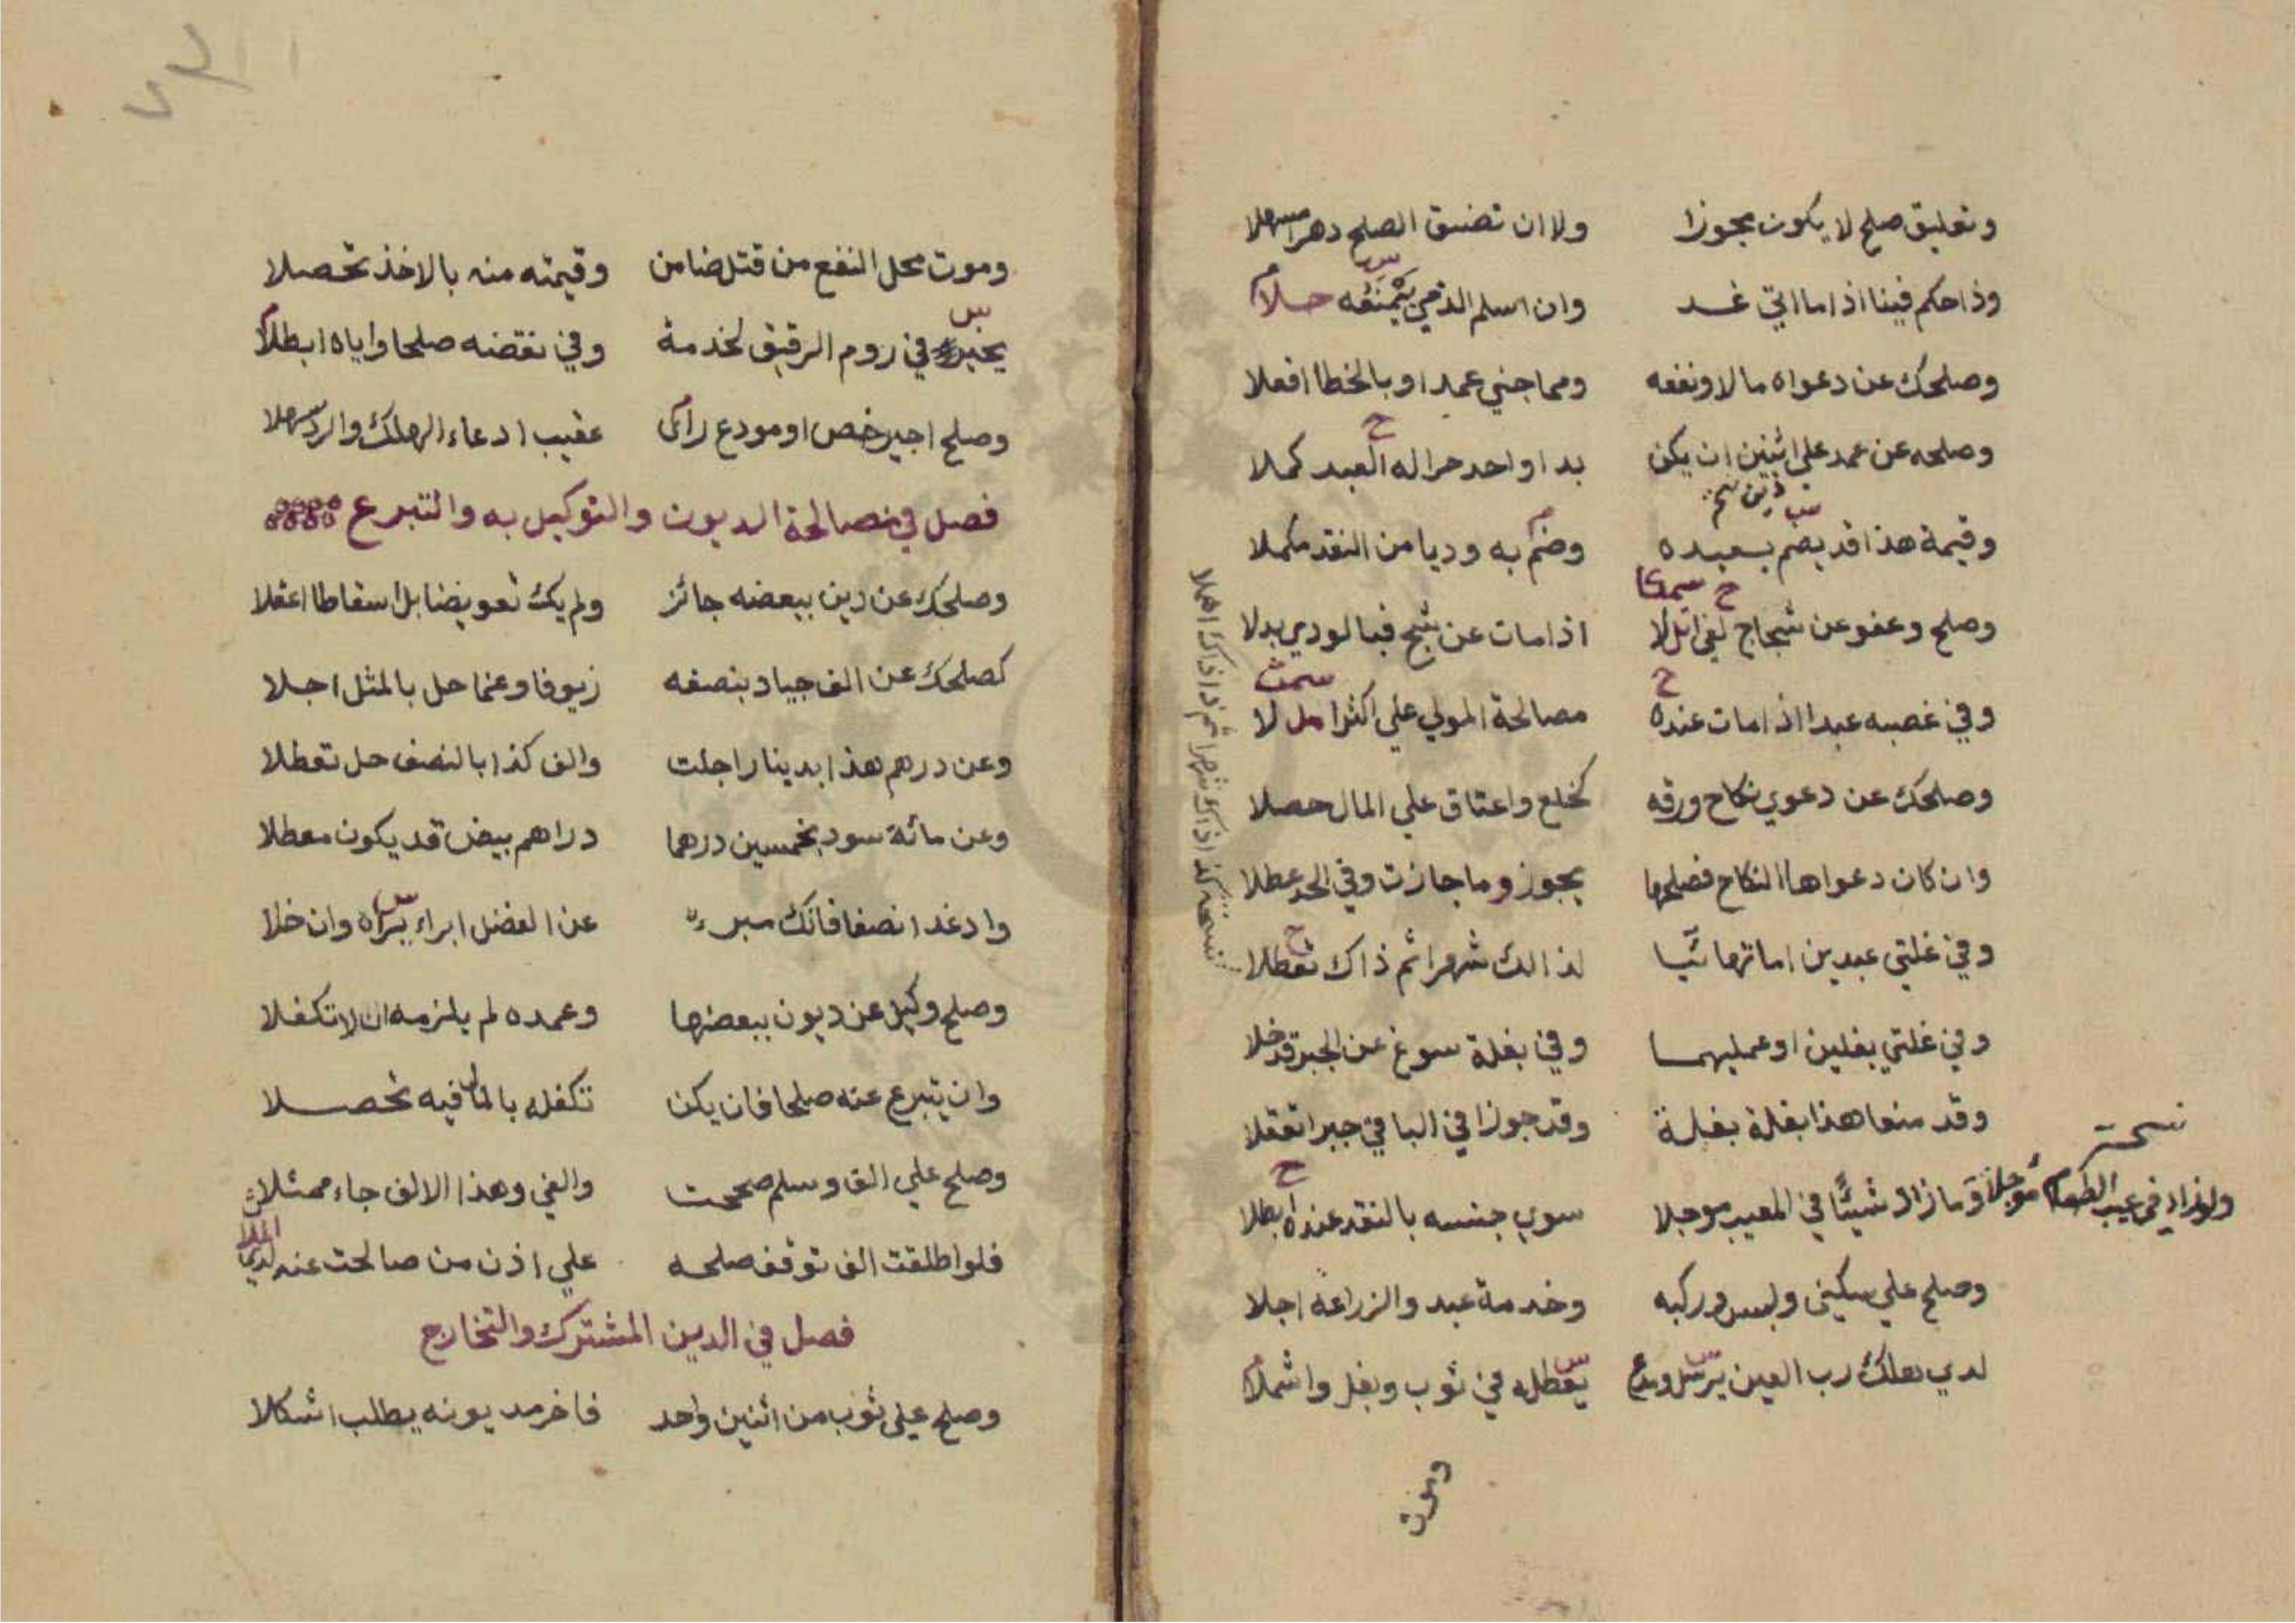 وتعليق صلح لا يكون مجوزا ولا ان تضيق الصلح دهرا مسهلا
وذا حكم فينا اذا ما اتي غد وان اسلم الذمي يثمنه حلا
وصلحك عن دعواه مالا ونفعه ومما جني عمدا او بالخطا افعلا
وصلحه عن عمد علي اثنين ان يكن بدا واحد حرا له العبد كملا
وقيمة هذا قد يضم بعبده وضم به وديا من النقد مكملا
وصلح وعفو عن شجاج لغي اذا مات عن شج فبا لودي بدلا
وفي غصبه عبدا اذا مات عنده مصالحة المولي علي اكثرا لا
وصلحك عن دعوي نكاح ورقه كخلع واعتاق علي المال حصلا
وان كان دعواها النكاح فصلحها يجوز وما جازت وفي الحد عطلا
وفي غلتي عبدين لذالك شهرا ثم ذاك تعطلا
وفي غلتي بغلين او عمليهما وفي بغلة سوغ عن الجبر قد خلا
وقد منعا هذا بغلة بغلة وقد جوزا في الباقي جبرا تعقلا
وما زاد شيئا في المعيب موجلا سوي جنسه بالنقد عنده ابطلا
وصلح علي سكني ولبس وركبه وخدمة عبد والزراعة اجلا
لدي هلك رب العين يعطله في ثوب وبغل واشملا
نسخة
ولو زاد في عيب الطعام موجلا
نسخة كذا ذاك شهرا ثم ذا ذاك اهلا
وموت محل النفع من قتل ضامن وقيمته منه بالاخذ تحصلا
يخير في روم الرقيق لخدمة وفي نقضه صلحا واياه ابطلا
وصلح اجير خص او مودع راي عقيب ادعاء الهلك والرد سهلا
فصل في مصالحة الديون والتوكيل به والتبرع
وصلحك عن دين ببعضه جائز ولم يك تعويضا بل اسقاطا اعقلا
كصلحك عن الف جياد بنصفه زيوفا وعما حل بالمثل اجلا
وعن درهم هذا بدينار اجلت والف كذا بالنصف حل تعطلا
وعن مائة سود بخمسين درهما دراهم بيض قد يكون معطلا
وادغدا نصفا فانك مبرء عن الفضل ابراء يبراه وان خلا
وصلح وكيل عن ديون ببعضها وعمده لم يلزمه ان لا تكفلا
وان يتبرع عنه صلحا فان يكن تكفله بالمال فيه تحصلا
وصلح علي الف وسلم صححت والفي وهذا الالف جاء ممثلا
فلو اطلقت الف توقف صلحه علي اذن من صالحت عنه لدي الملا
فصل في الدين المشترك والتخارج
وصلح علي ثوب من اثنين واحد فاخر مديونه يطلب اشكلا